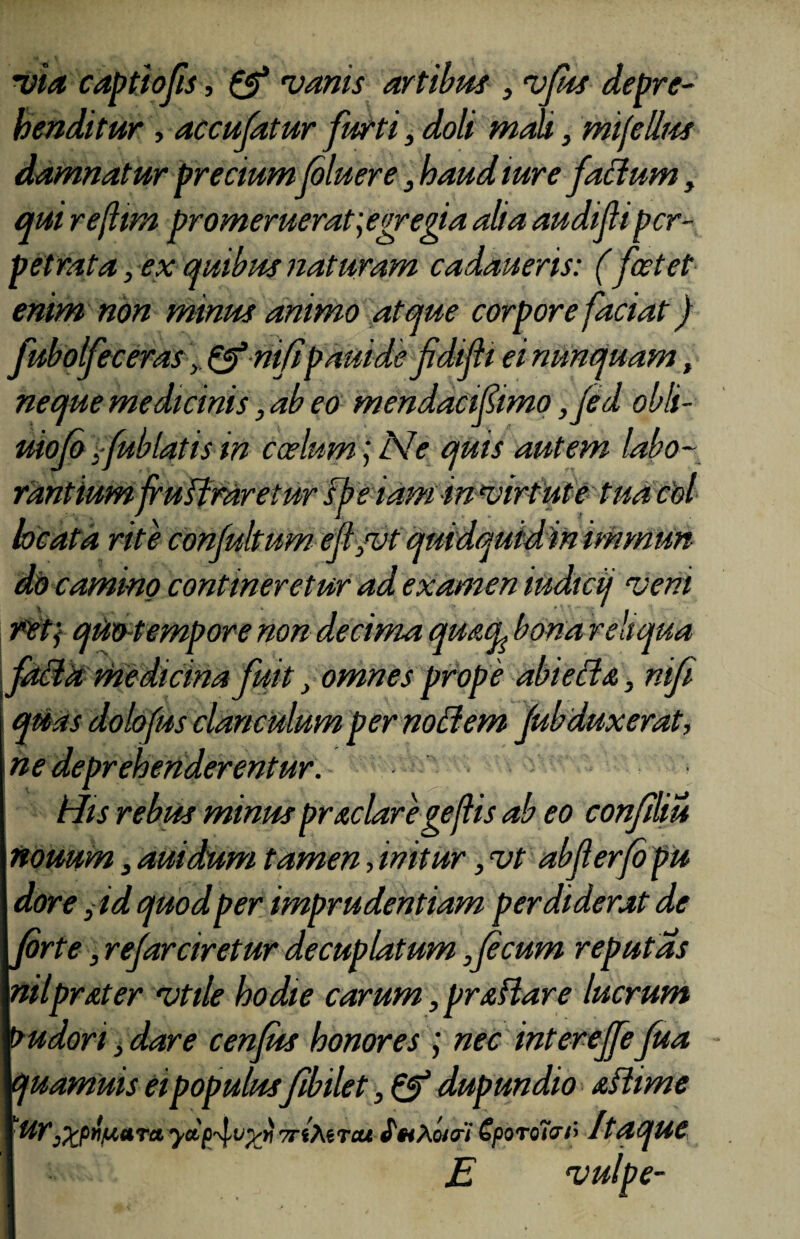 via captiosis, & vanis artibus, vsus depre-
henditur, accusatur furti, doli mali, misellus
damnatur precium soluere, haud iure factum,
qui restim promeruerat; egregia alia audisti per-
petrata, ex quibus naturam cadaueris: (fœtet
enim non minus animo atque corpore faciat)
subolfeceras, & nisi pauide fidisti ei nunquam,
neque medicinis, ab eo mendacissimo, sed obli-
uioso, sublatis in cœlum; Ne quis autem labo-
rantium frustraretur spe iam in virtute tua col
locata rite consultum est, vt quidquid in immun
do camino contineretur ad examen iudicij veni
ret; quo tempore non decima quæq; bona reliqua
facta medicina fuit, omnes prope abiectæ, nisi
quas dolosus clanculum per noctem subduxerat,
ne deprehenderentur.
His rebus minus præclare gestis ab eo consiliū
nouum, auidum tamen, initur, vt absterso pu
dore, id quod per imprudentiam perdiderat de
sorte, resarciretur decuplatum, secum reputās
nil præter vtile hodie carum, præstare lucrum
pudori, dare census honores; nec interesse sua
quamuis ei populus sibilet, & dupundio æstime
tur, χρήματα γὰρ ψυχὴ πέλεται δηλοῖσι βροτοῖσι, Itaque
E vulpe-